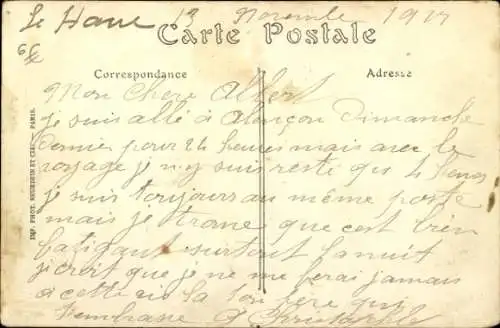 Le Havre 13 Novembre 1917
Carte Postale
Correspondance
Adresse
Mon Chere Albert
je suis allé à Alençon Dimanche
dernier pour 24 heures mais avec le
voyage je n'y suis resté que 4 heures
je suis toujours au même poste
mais je trouve que c'est bien
fatigant surtout la nuit
je croit que je ne me ferai jamais
à cette vie la ton père qui
t'embrasse
IMP. PHOT. NEURDEIN ET CIE. - PARIS.